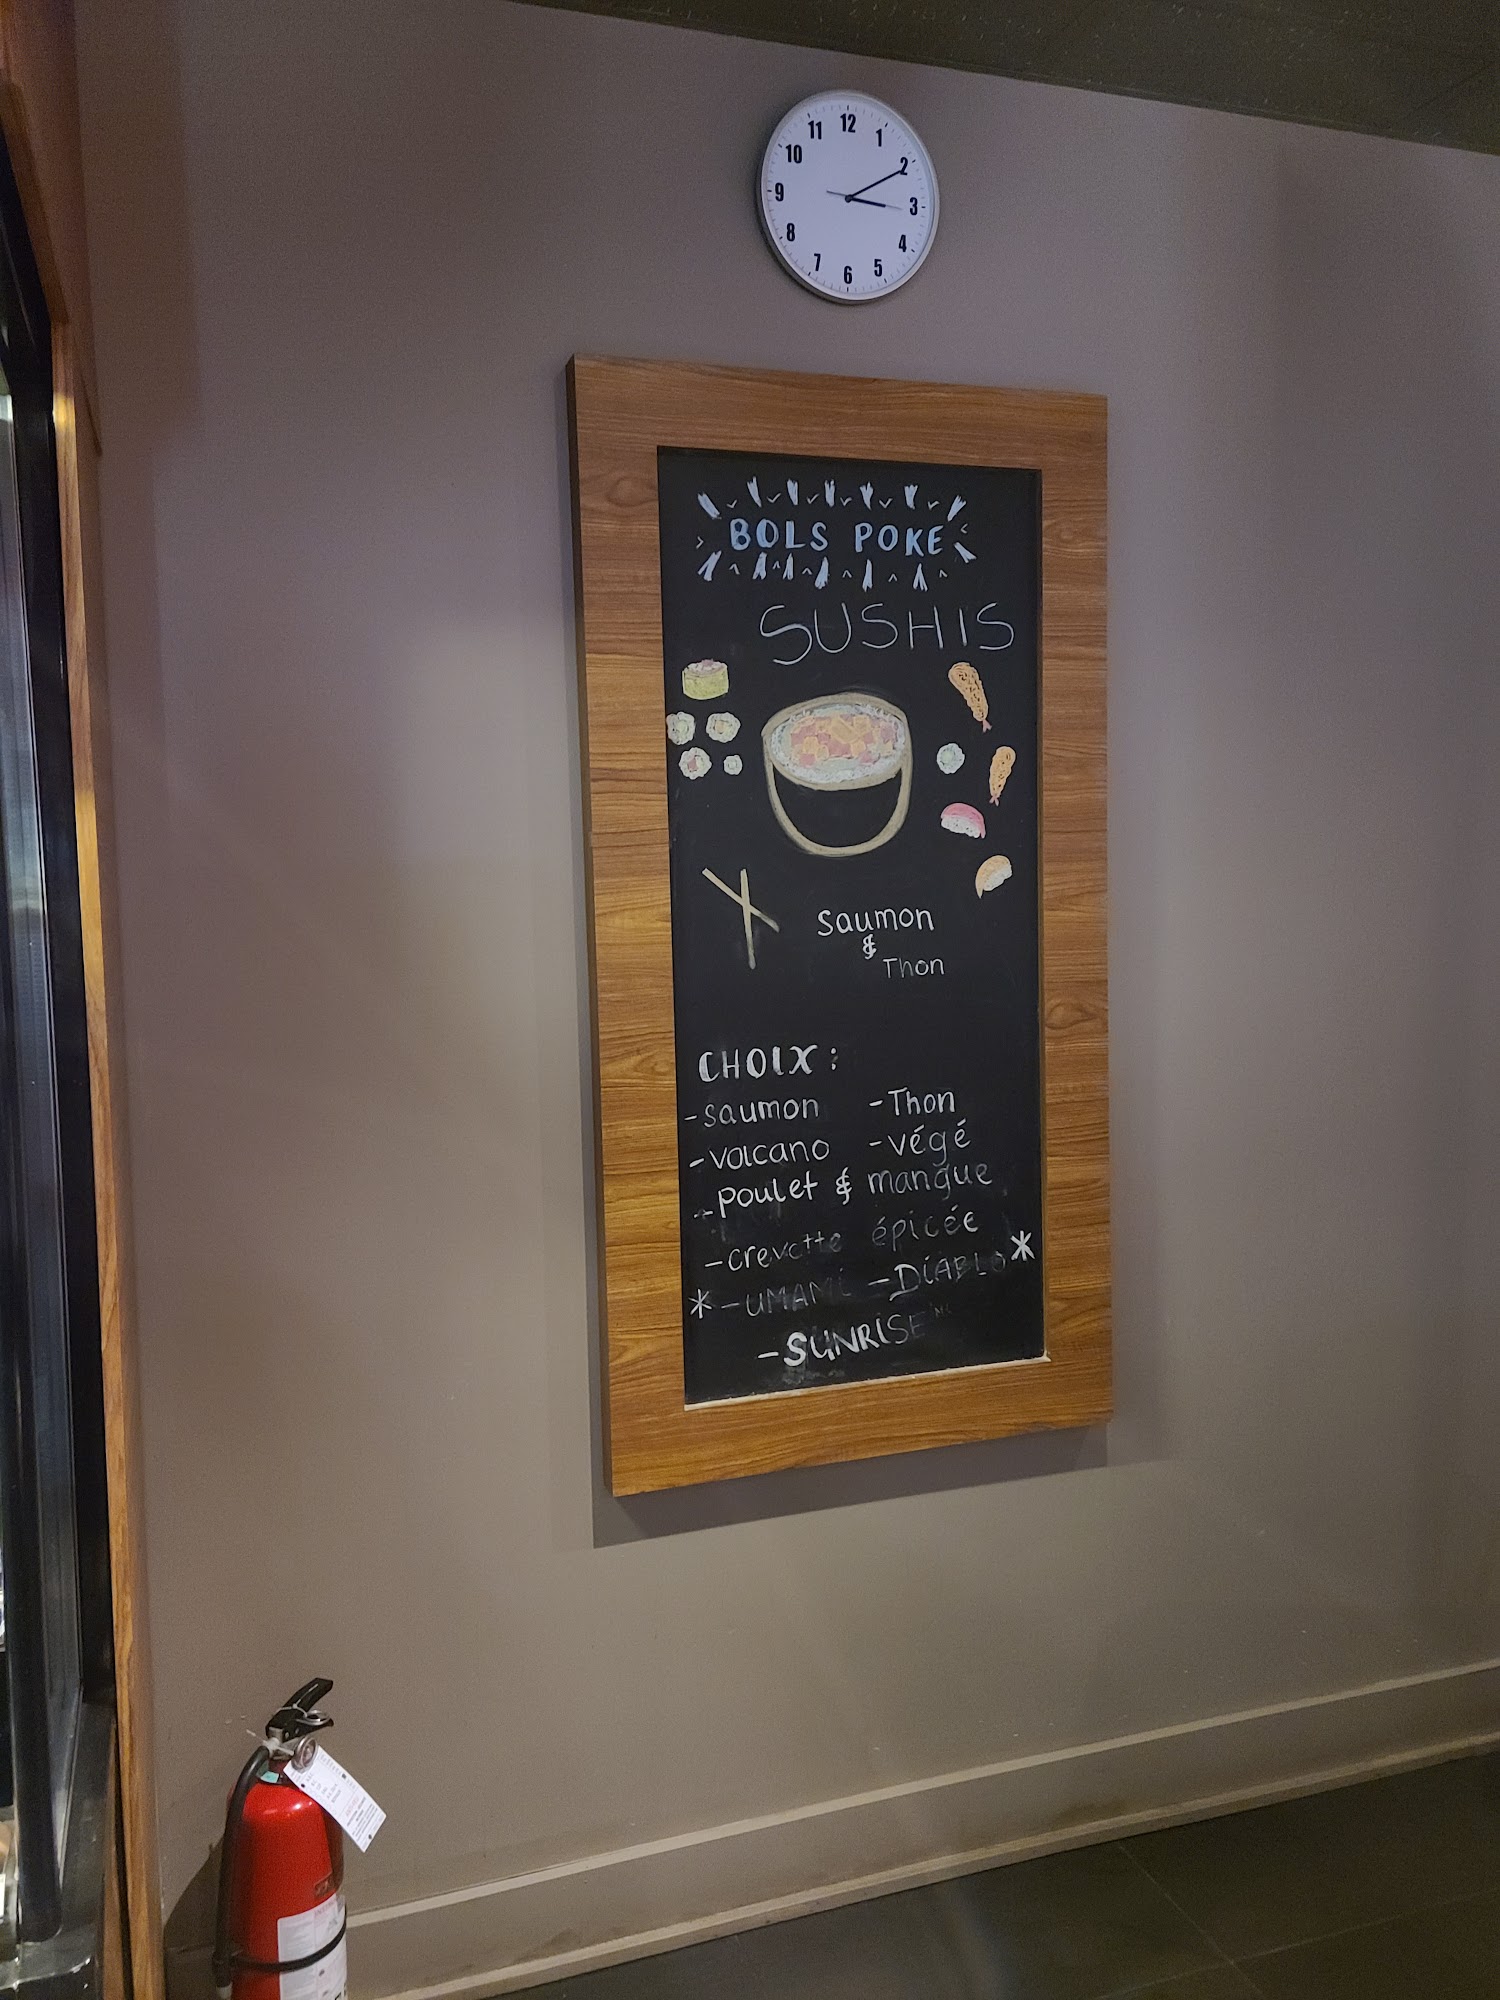 11 12 1
10 2
9 3
8 4
7 6 5
BOLS POKE
SUSHIS
Saumon
&
Thon
CHOIX :
- saumon - Thon
- volcano - végé
- poulet & mangue
- crevette épicée
* - UMAMi - DiABLO *
- SUNRiSE